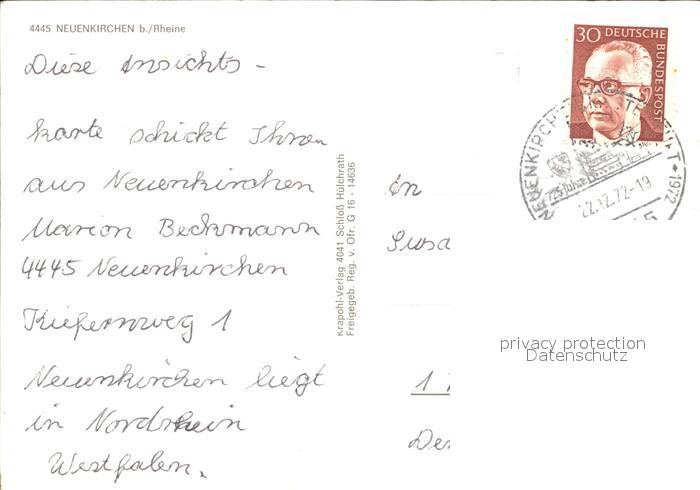 4445 NEUENKIRCHEN b./Rheine
Diese Ansichts-
karte schickt Ihnen
aus Neuenkirchen
Marion Beckmann
4445 Neuenkirchen
Kiefernweg 1
Neuenkirchen liegt
in Nordrhein
Westfalen.
Krapohl-Verlag 4041 Schloß Hülchrath
Freigegeb. Reg. v. Ofr. G 16 - 14636
30 DEUTSCHE
BUNDESPOST
NEUENKIRCH
725 Jahre
1972
22.12.72-19
An
Susa
1
De
privacy protection
Datenschutz